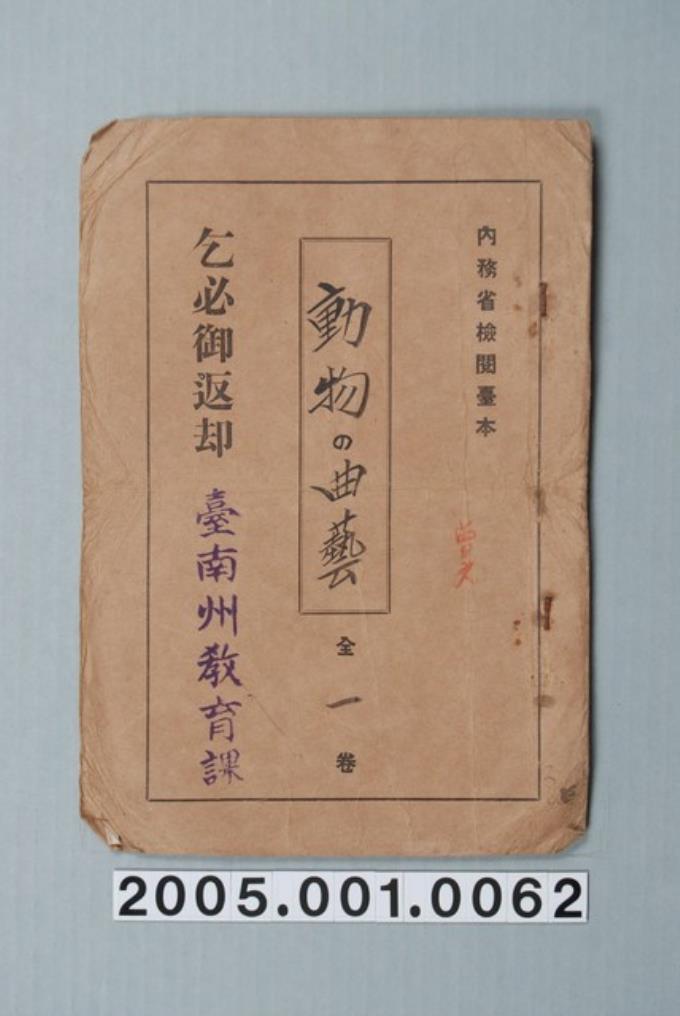 内務省檢閲臺本
動物の曲藝
全一卷
乞必御返却
臺南州教育課
2005.001.0062